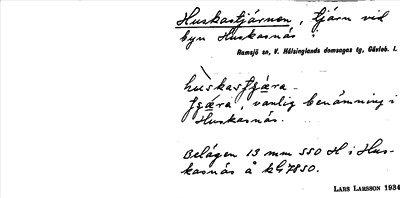 Huskastjärnen, tjärn vid
byn Huskasnäs.
Ramsjö sn, V. Hälsinglands domsagas tg, Gävleb. l.
huskas
vanlig benämning i
Huskasnäs.
Belägen 13 mm 550 H i Hus-
kasnäs å kG 7850.
LARS LARSSON 1934